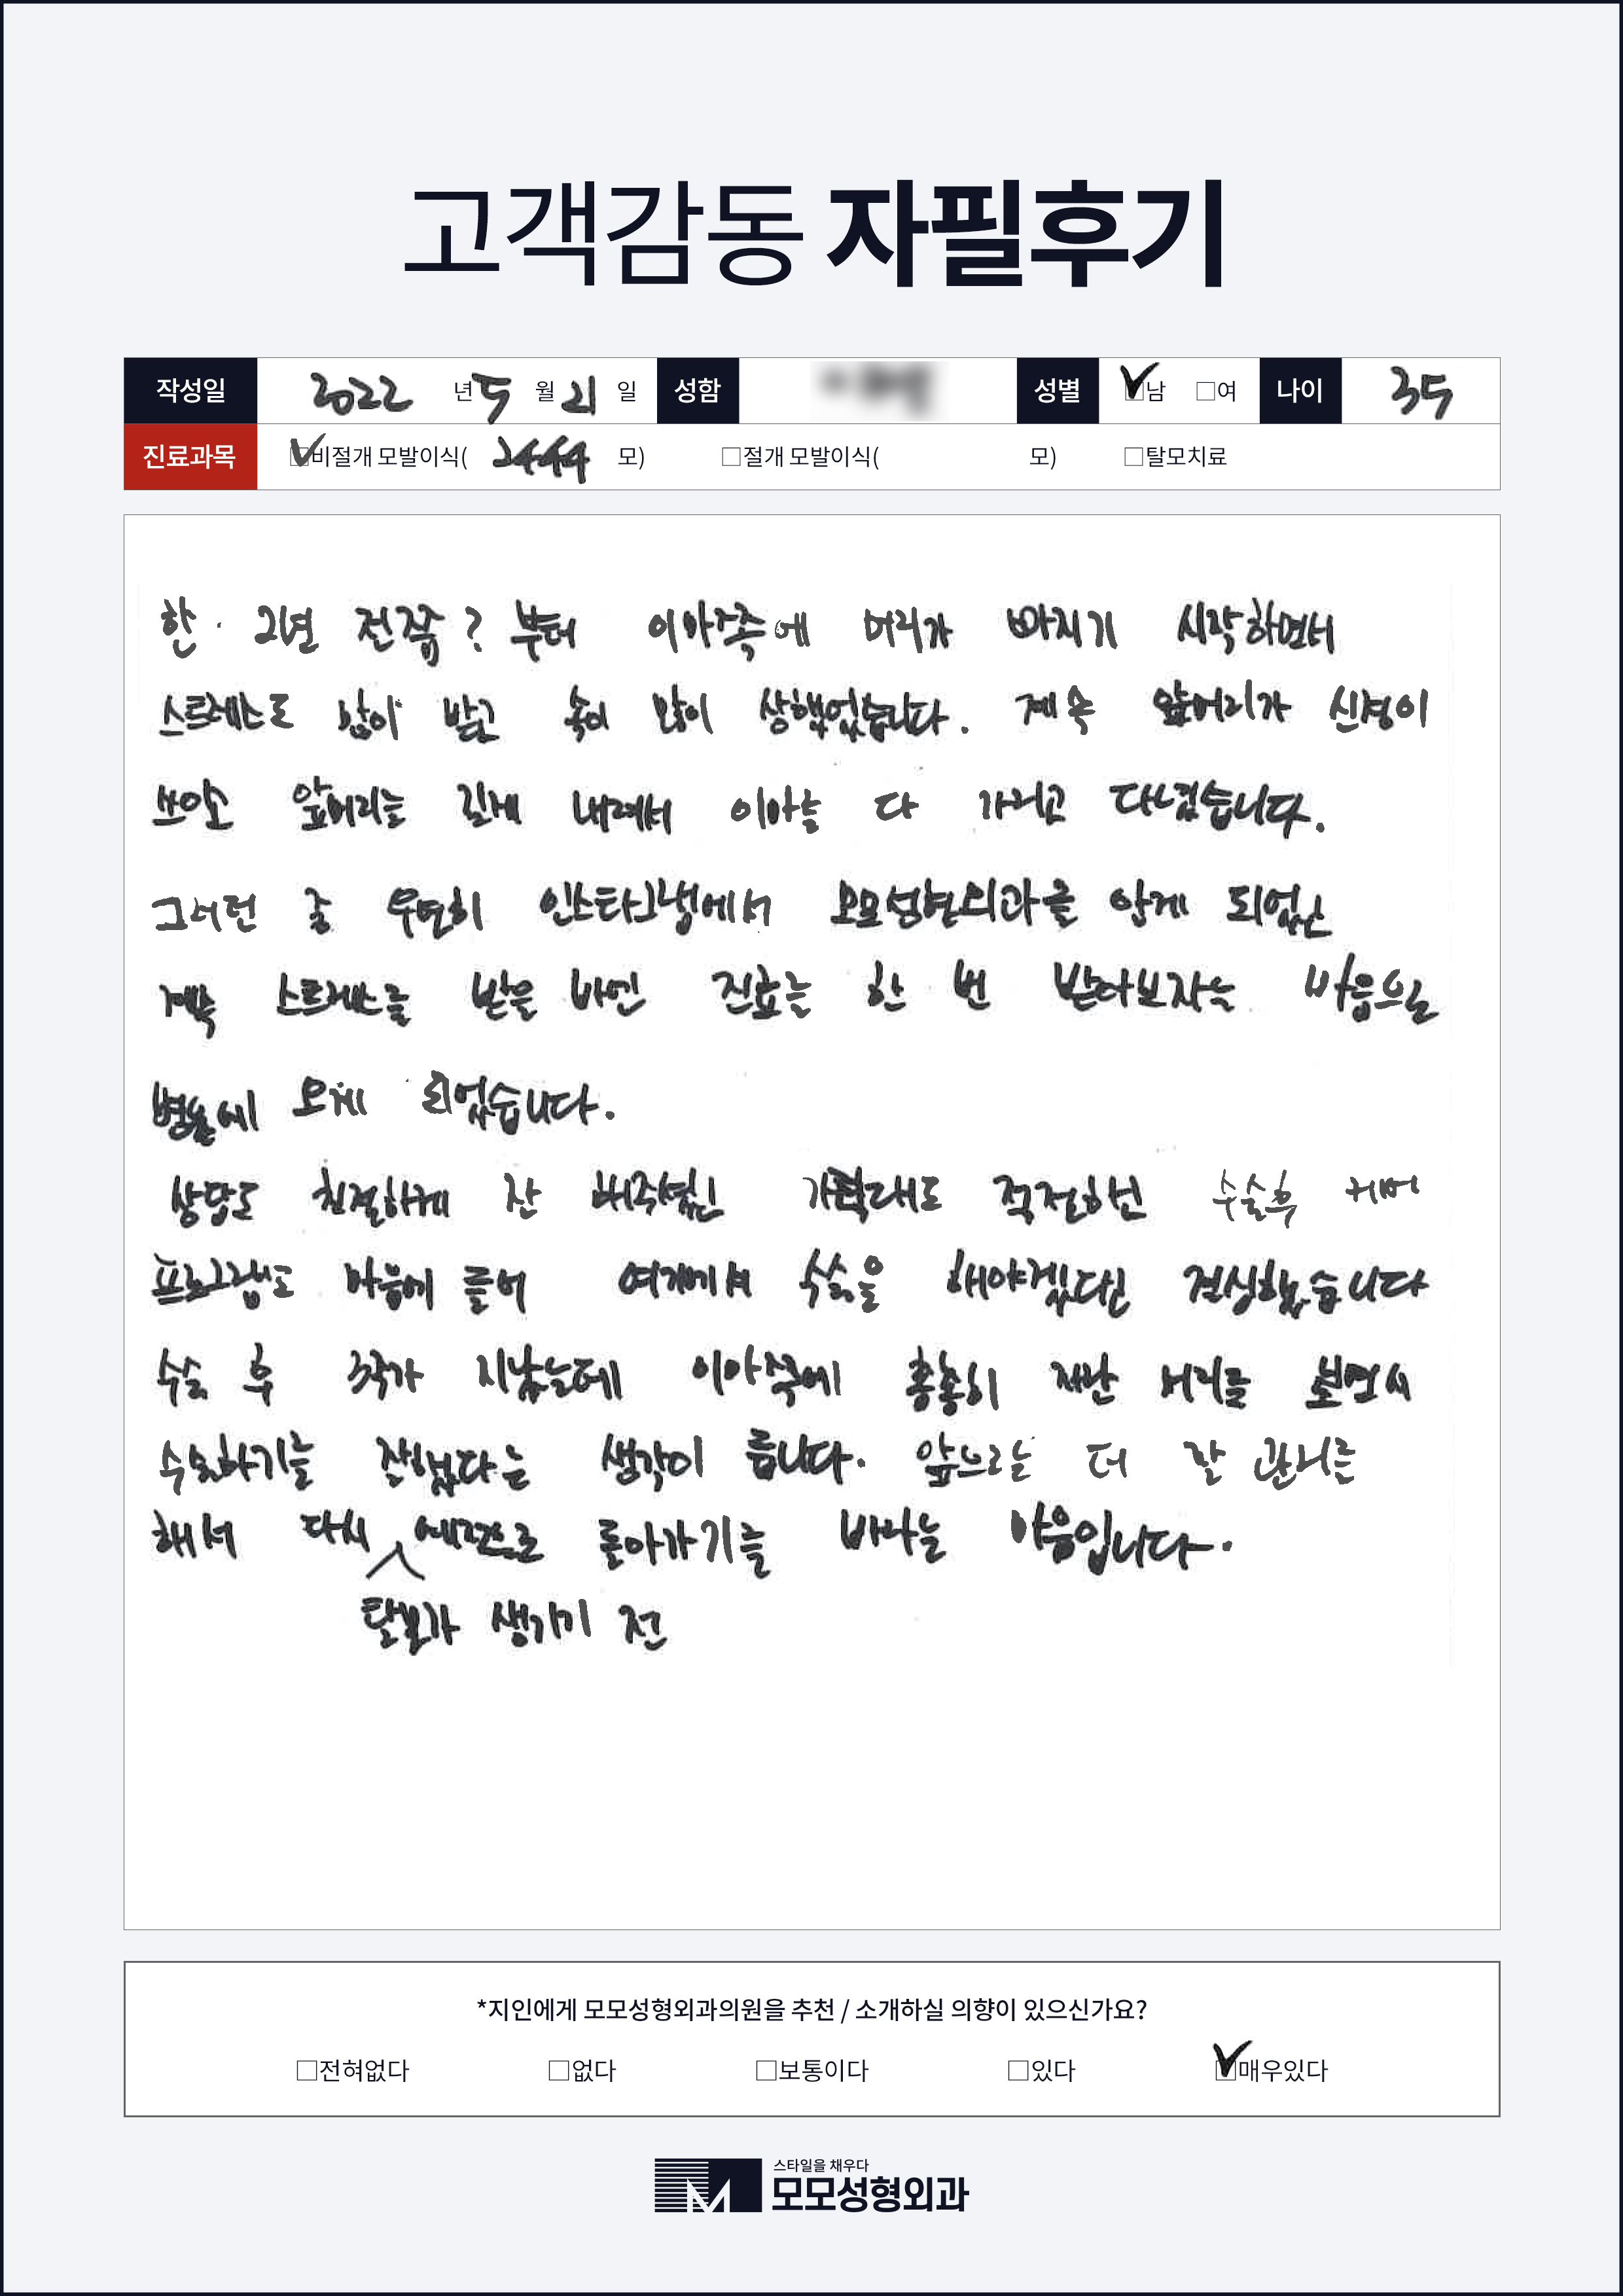 고객감동 자필후기
작성일 2022 년 5 월 21 일 성함 성별 ☑남 □여 나이 35
진료과목 ☑비절개 모발이식( 2444 모) □절개 모발이식( 모) □탈모치료
한 2년 전쯤? 부터 이마쪽에 머리가 빠지기 시작하면서
스트레스도 많이 받고 속이 많이 상했었습니다. 계속 앞머리가 신경이
쓰이고 앞머리는 길게 내려서 이마는 다 가리고 다녔습니다.
그러던 중 우연히 인스타그램에서 모모성형외과를 알게 되었고
계속 스트레스를 받을 바엔 진료는 한 번 받아보자는 마음으로
병원에 오게 되었습니다.
상담도 친절하게 잘 해주셨고 가격대도 적절하고 수술후 케어
프로그램도 마음에 들어 여기에서 수술을 해야겠다고 결심했습니다
수술 후 3주가 지났는데 이마쪽에 총총히 자란 머리를 보면서
수술하기를 잘했다는 생각이 듭니다. 앞으로는 더 잘 관리를
해서 다시 예전으로 돌아가기를 바라는 마음입니다.
탈모가 생기기 전
*지인에게 모모성형외과의원을 추천 / 소개하실 의향이 있으신가요?
□전혀없다 □없다 □보통이다 □있다 ☑매우있다
스타일을 채우다
모모성형외과